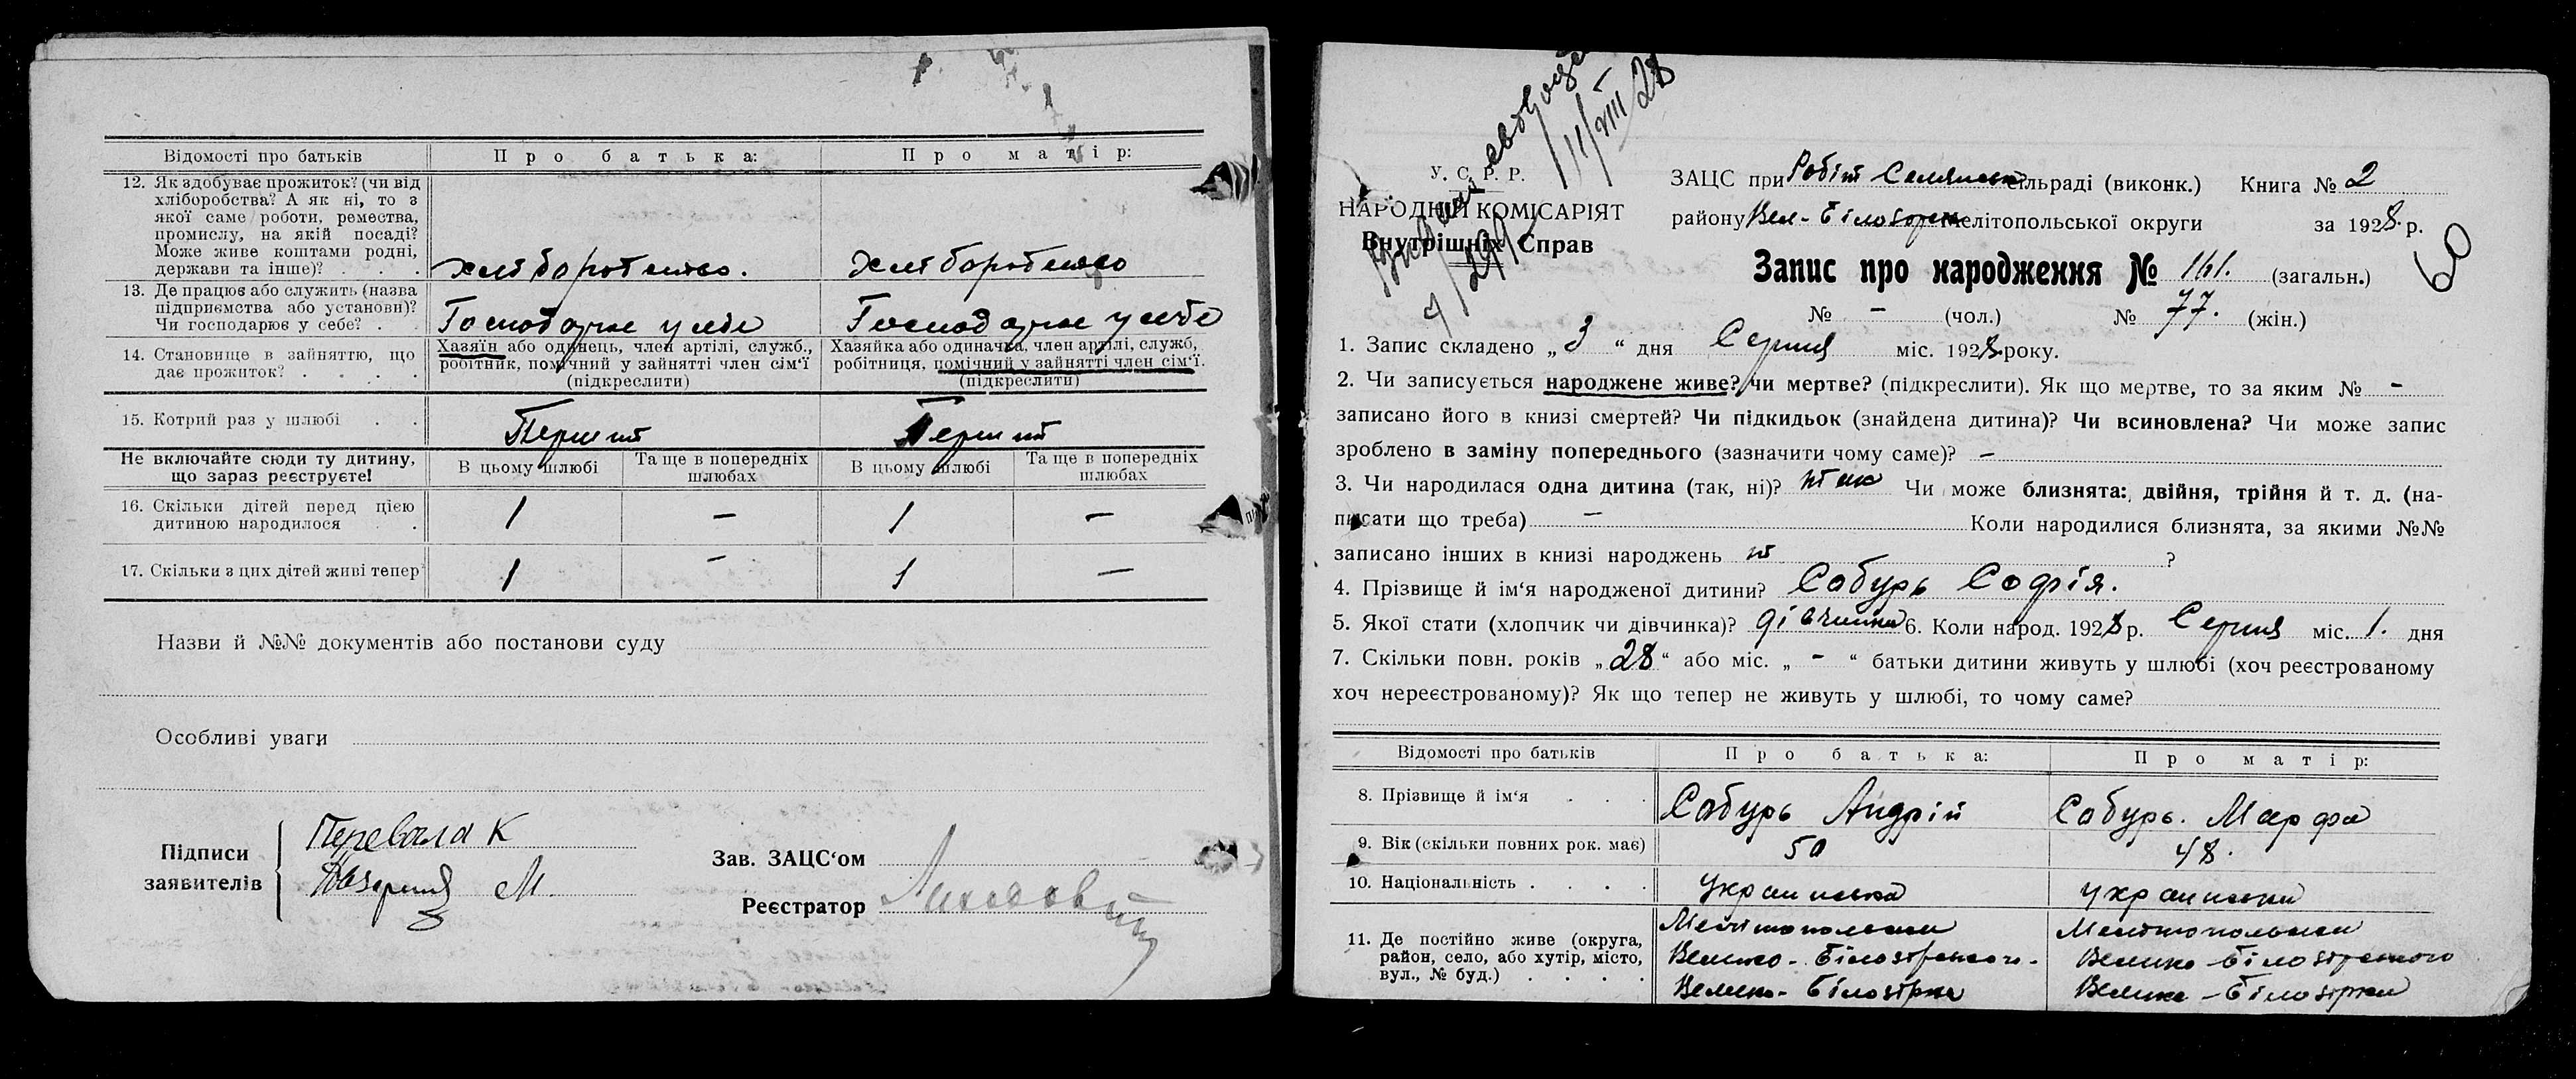 Відомості про батьків
Про батька:
Про матір:
12. Як здобуває прожиток? (чи від
хліборобства? А як ні, то з
якої саме роботи, ремества,
промислу, на якій посаді?
Може живе коштами родні,
держави та інше)? . . .
хліборобство.
хліборобство
13. Де працює або служить (назва
підприємства або установи)?
Чи господарює у себе? . .
Господарює у себе
Господарює у себе
14. Становище в зайняттю, що
дає прожиток? . . . .
Хазяїн або одинець, член артілі, служб.,
робітник, помічний у зайнятті член сім'ї
(підкреслити)
Хазяйка або одиначка, член артілі, служб,
робітниця, помічний у зайнятті член сім'ї.
(підкреслити)
15. Котрий раз у шлюбі . .
Перший
Перший
Не включайте сюди ту дитину,
що зараз реєструєте!
В цьому шлюбі
Та ще в попередніх
шлюбах
В цьому шлюбі
Та ще в попередніх
шлюбах
16. Скільки дітей перед цією
дитиною народилося . .
1 — 1 —
17. Скільки з цих дітей живі тепер?
1 — 1 —
Назви й №№ документів або постанови суду
Особливі уваги
Підписи
заявителів
Перевала К
М.
Зав. ЗАЦС'ом
Реєстратор
11/VIII 28
У. С. Р. Р.
НАРОДНИЙ КОМІСАРІЯТ
Внутрішніх Справ
ЗАЦС при Робіт Селянськ сільраді (виконк.) Книга № 2
району Вел-Білозорськ Мелітопольської округи за 1928 р.
60
Запис про народження № 161. (загальн.)
№ — (чол.) № 77. (жін.)
1. Запис складено „3“ дня Серпня міс. 1928 року.
2. Чи записується народжене живе? чи мертве? (підкреслити). Як що мертве, то за яким № —
записано його в книзі смертей? Чи підкидьок (знайдена дитина)? Чи всиновлена? Чи може запис
зроблено в заміну попереднього (зазначити чому саме)? —
3. Чи народилася одна дитина (так, ні)? так Чи може близнята: двійня, трійня й т. д. (на-
писати що треба) — Коли народилися близнята, за якими №№
записано інших в книзі народжень ?
4. Прізвище й ім'я народженої дитини? Сабурь Софія.
5. Якої стати (хлопчик чи дівчинка)? дівчинка 6. Коли народ. 1928 р. Серпня міс. 1. дня
7. Скільки повн. років „28“ або міс. „ - “ батьки дитини живуть у шлюбі (хоч реєстрованому
хоч нереєстрованому)? Як що тепер не живуть у шлюбі, то чому саме?
Відомості про батьків
Про батька:
Про матір:
8. Прізвище й ім'я . . .
Сабурь Андрій
Сабурь. Марфа
9. Вік (скільки повних рок. має)
50
48.
10. Національність . . . .
Українська
українська
11. Де постійно живе (округа,
район, село, або хутір, місто,
вул., № буд.) . . . .
Мелітопольськ
Велико-Білозірського-
Велико-Білозірка
Мелітопольськ
Велико-Білозірського
Велика-Білозірка